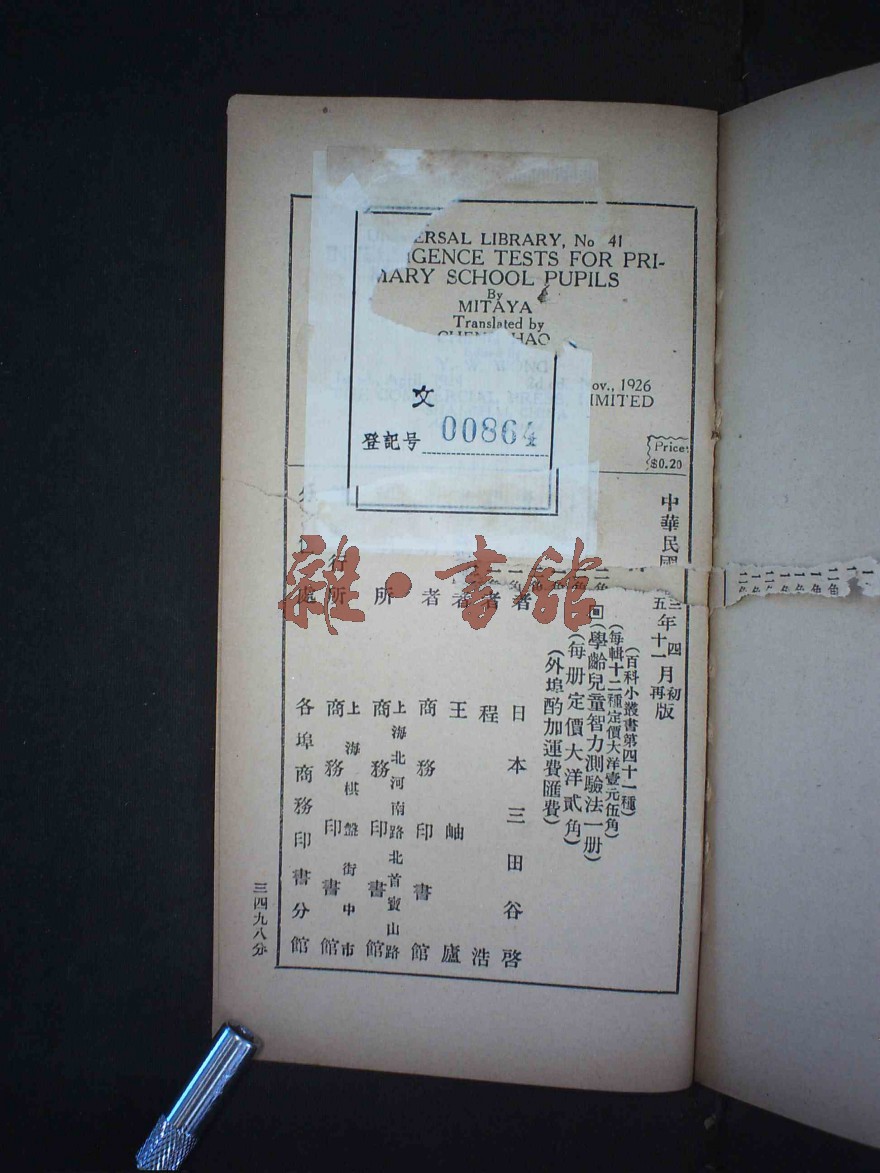 ERSAL LIBRARY, No 41
IGENCE TESTS FOR PRI-
MARY SCHOOL PUPILS
By
MITAYA
Translated by
HAO
ov., 1926
IMITED
Price:
$0.20
文
登記号 00864
中華民國
三年四月初版
五年十一月再版
(百科小叢書第四十一種)
(每輯十二種定價大洋壹元伍角)
回(學齡兒童智力測驗法一册)
(每册定價大洋貳角)
(外埠酌加運費匯費)
者 日本三田谷啓
者 程浩
者 王岫廬
者 商務印書館
所 上海北河南路北首寶山路
商務印書館
行所 上海棋盤街中市
商務印書館
處 各埠商務印書分館
三四九八分
雜·書館